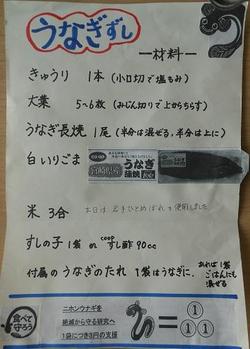 うなぎずし
ー材料ー
きゅうり 1本 (小口切で塩もみ)
大葉 5~6枚 (みじん切りで上からちらす)
うなぎ長焼 1尾 (半分は混ぜる、半分は上に)
白いりごま
宮崎県産
うなぎ
蒲焼
米 3合
本日は岩手ひとめぼれを使用しました
すしの子 1袋 or coopすし酢 90cc
付属のうなぎのたれ 1袋はうなぎに、
あれば1袋
ごはんにも
混ぜる
食べて
守ろう
ニホンウナギを
絶滅から守る研究へ
1袋につき3円の支援
= ① ①①